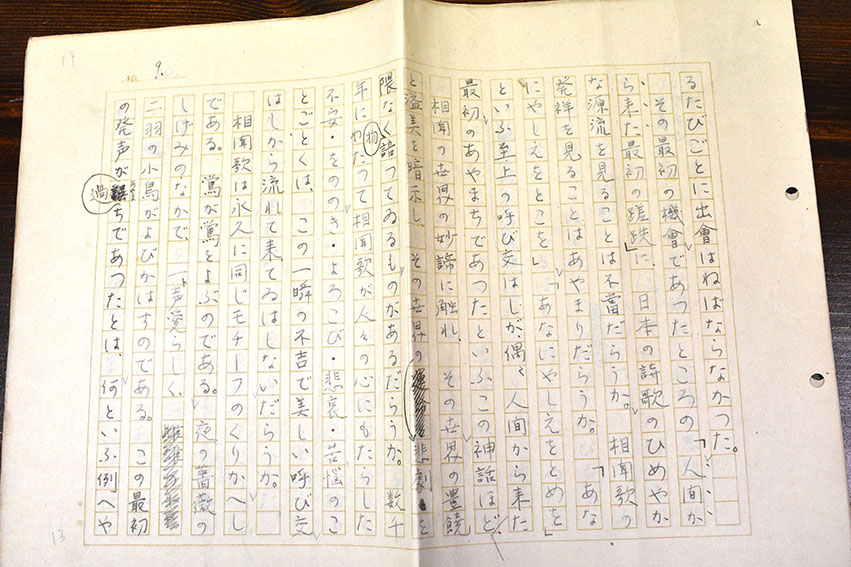 るたびごとに出會はねばならなかつた。
その最初の機會であつたところの「人間か
ら来た最初の蹉跌」に、日本の詩歌のひめやか
な源流を見ることは不當だらうか。相聞歌の
発祥を見ることはあやまりだらうか。「あな
にやしえをとこを」「あなにやしえをとめを」
といふ至上の呼び交はしが、偶〻人間から来た
最初のあやまちであつたといふこの神話ほど、
相聞の世界の妙諦に触れ、その世界の豊饒
と溢美を暗示し、その世界の悲劇を
限なく語つてゐるものがあるだらうか。数千
年にわたつて相聞歌が人々の心にもたらした
物
不安・をののき・よろこび・悲哀・苦悩のこ
とごとくは、この一瞬の不吉で美しい呼び交
はしから流れて来てゐはしないだらうか。
相聞歌は永久に同じモチーフのくりかへし
である。鶯が鶯をよぶのである。夜の薔薇の
しげみのなかで、一ト声愛らしく、
二羽の小鳥がよびかはすのである。この最初
の発声が過ちであつたとは、何といふ例へや
9.
19
13